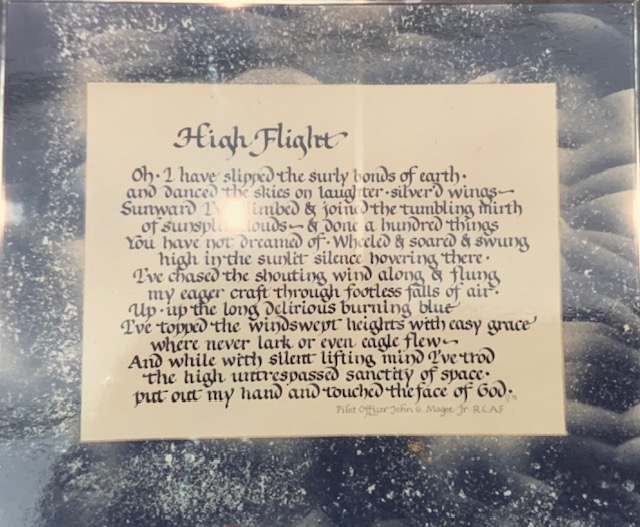 High Flight
Oh · I have slipped the surly bonds of earth ·
and danced the skies on laughter · silver'd wings ~
Sunward I've climbed & joined the tumbling mirth
of sunsplit clouds ~ & done a hundred things
You have not dreamed of · Wheeled & soared & swung
high in the sunlit silence hovering there ·
I've chased the shouting wind along & flung
my eager craft through footless falls of air ·
Up · up the long delirious burning blue
I've topped the windswept heights with easy grace
where never lark or even eagle flew ~
And while with silent lifting mind I've trod
the high untrespassed sanctity of space ·
put out my hand and touched the face of God ·
Pilot Officer John G Magee Jr R C A F